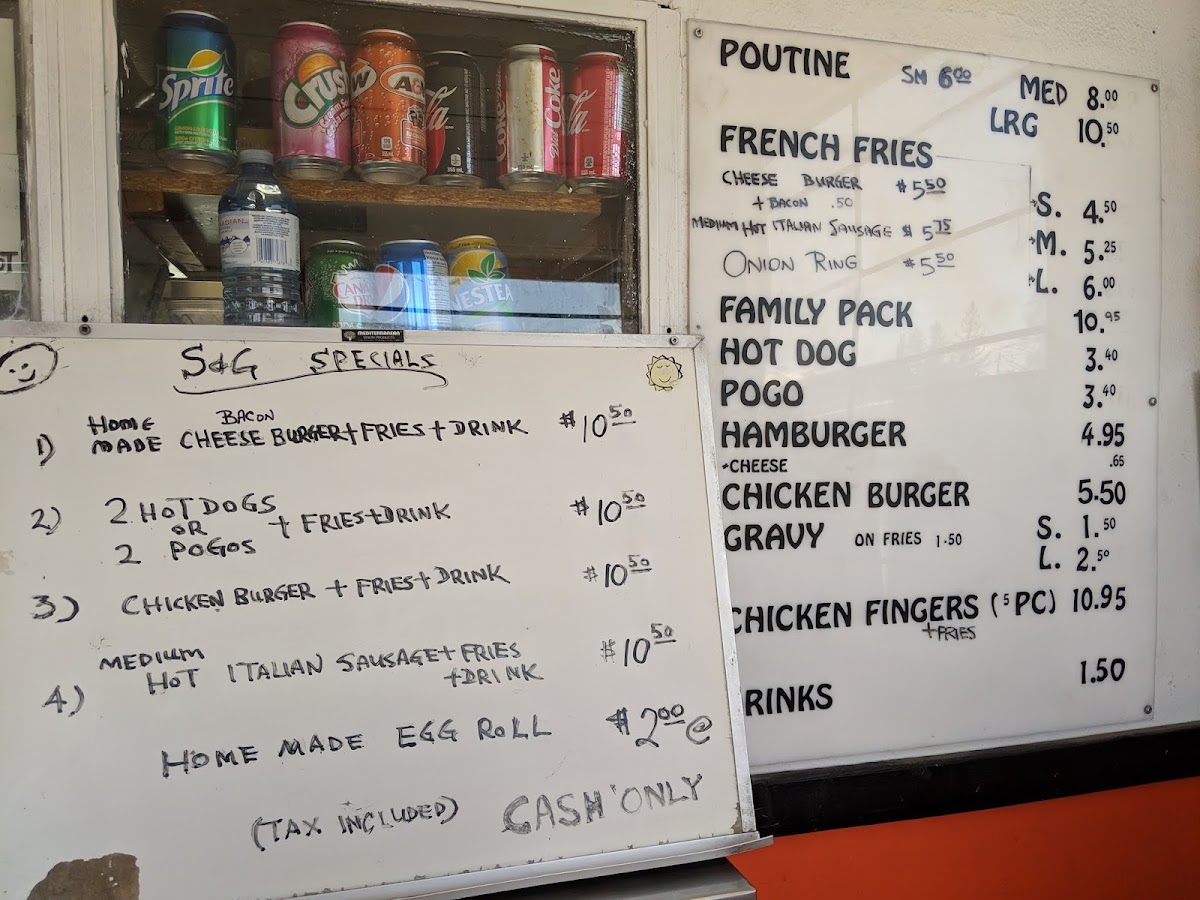 Sprite
Crush
A&W
Coke
Diet Coke
S&G SPECIALS
1) HOME MADE BACON CHEESE BURGER + FRIES + DRINK $10.50
2) 2 HOT DOGS
OR + FRIES + DRINK $10.50
2 POGOS
3) CHICKEN BURGER + FRIES + DRINK $10.50
4) MEDIUM
HOT ITALIAN SAUSAGE + FRIES $10.50
+ DRINK
HOME MADE EGG ROLL $2.00 @
(TAX INCLUDED) CASH ONLY
POUTINE SM 6.00 MED 8.00
LRG 10.50
FRENCH FRIES
CHEESE BURGER $5.50
+ BACON .50
S. 4.50
MEDIUM HOT ITALIAN SAUSAGE $5.75
M. 5.25
ONION RING $5.50
L. 6.00
FAMILY PACK 10.95
HOT DOG 3.40
POGO 3.40
HAMBURGER 4.95
+CHEESE .65
CHICKEN BURGER 5.50
GRAVY ON FRIES 1.50 S. 1.50
L. 2.50
CHICKEN FINGERS (5 PC) 10.95
+FRIES
RINKS 1.50